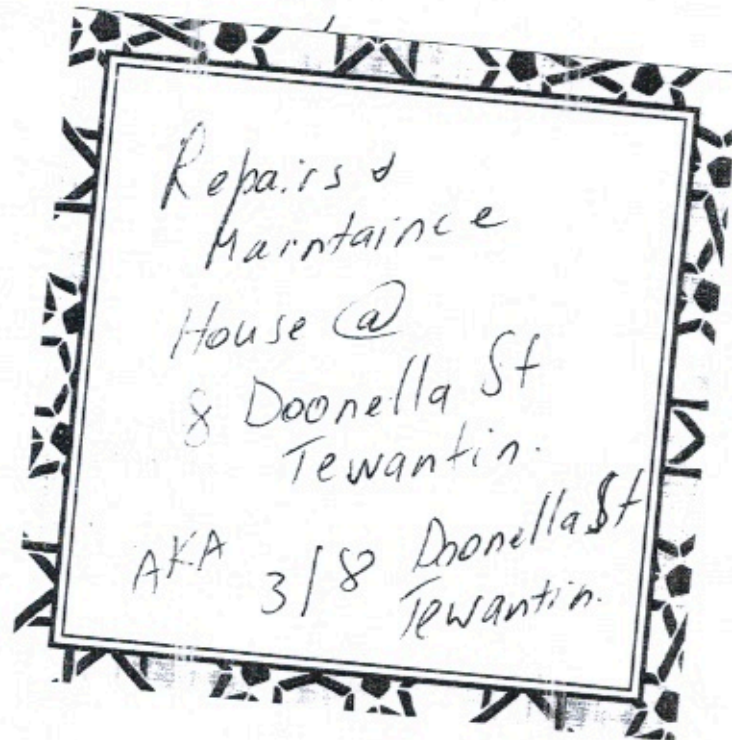 Repairs &
Maintaince
House @
8 Doonella St
Tewantin.
AKA 3/8 Doonella St
Tewantin.